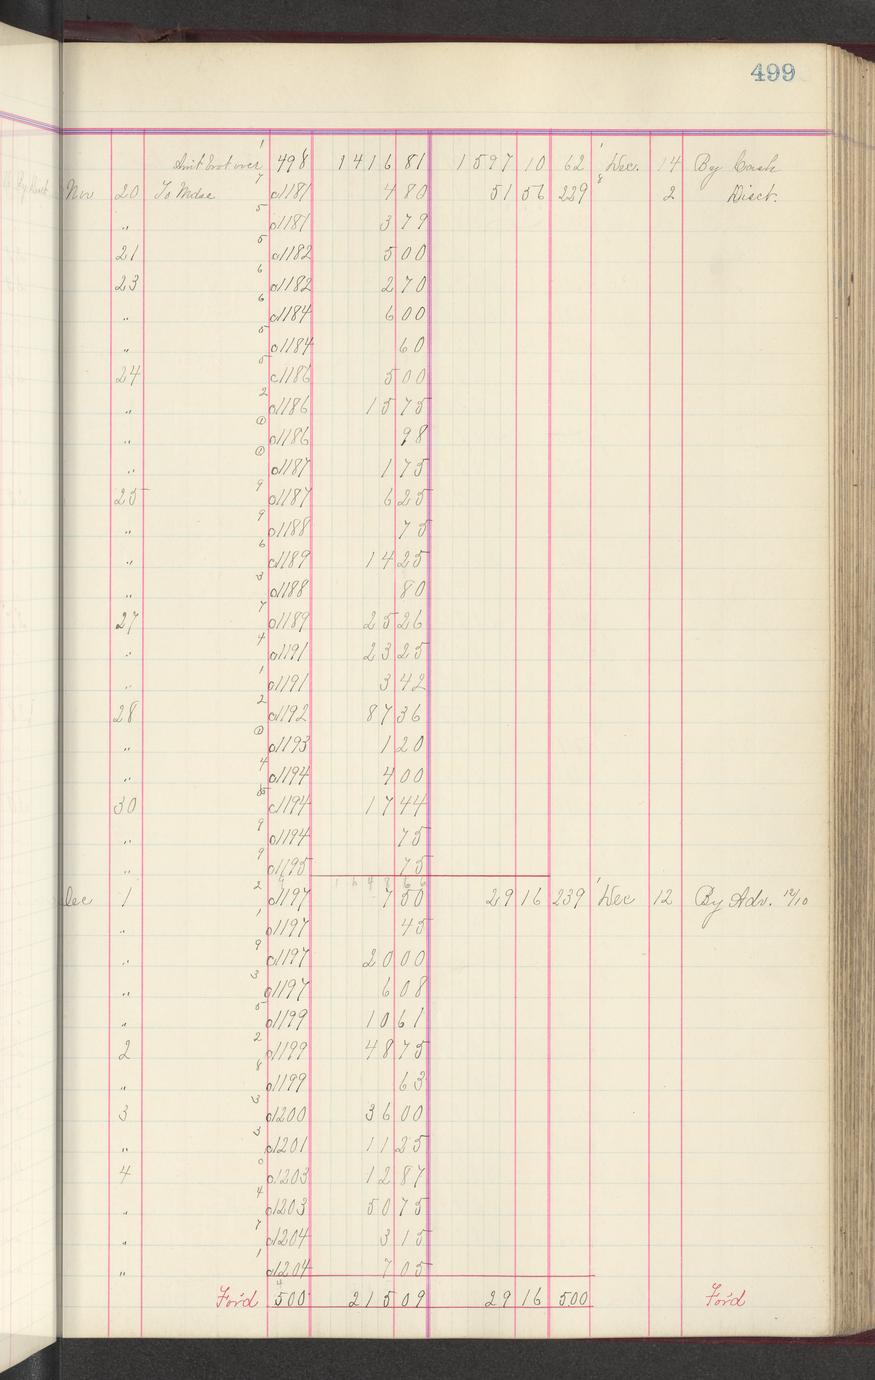 499
Amt brot over 1 498 1416 81 1597 10 62 1 Dec. 14 By Cash
Nov 20 To Mdse 7 c1181 4 80 51 56 229 8 2 Disct.
" 5 c1181 3 79
21 5 c1182 5 00
23 6 c1182 2 70
" 6 c1184 6 00
" 5 c1184 60
24 5 c1186 5 00
" 2 c1186 15 75
" 1 c1186 98
" 1 c1187 1 75
25 9 c1187 6 25
" 9 c1188 75
" 6 c1189 14 25
" 3 c1188 80
27 7 c1189 25 26
" 4 c1191 23 25
" 1 c1191 3 42
28 2 c1192 87 36
" 1 c1193 1 20
" 4 c1194 4 00
30 c1194 17 44
" 9 c1194 75
" 9 c1195 75
1648 66
Dec 1 2 c1197 7 50 29 16 239 1 Dec 12 By Adv. 12/10
" 1 c1197 45
" 9 c1197 20 00
" 3 c1197 6 08
" 5 c1199 10 61
2 2 c1199 48 75
" 8 c1199 63
3 3 c1200 36 00
" 3 c1201 11 25
4 0 c1203 12 87
" 4 c1203 50 75
" 7 c1204 3 15
" 1 c1204 7 05
For'd 4 500 215 09 29 16 500 For'd